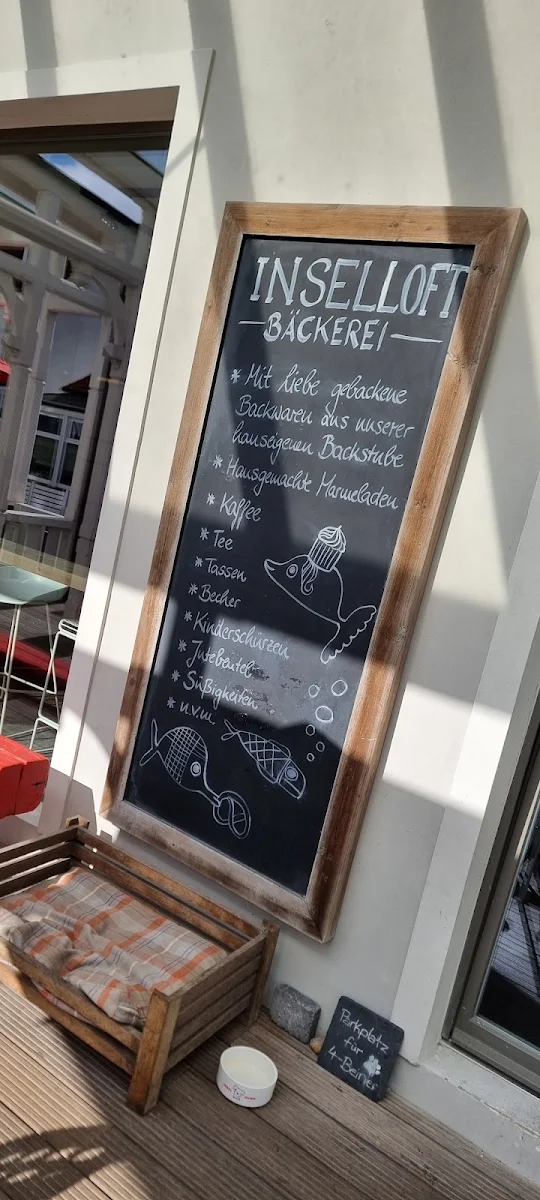 INSELLOFT
— BÄCKEREI —
* Mit liebe gebackene
Backwaren aus unserer
hauseigenen Backstube
* Hausgemachte Marmeladen
* Kaffee
* Tee
* Tassen
* Becher
* Kinderschürzen
* Jutebeutel
* Süßigkeiten
* u.v.m.
Parkplatz
für
4-Beiner